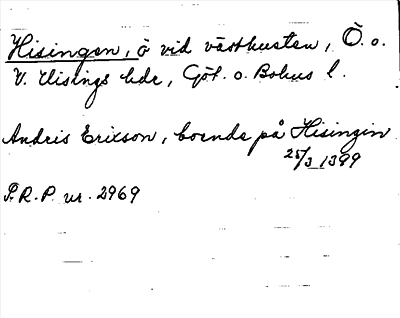 Hisingen, ö vid västkusten, Ö. o.
V. Hisings hdr, Göt. o. Bohus l.
Andris Ericson, boende på Hisingin
25/3 1399
S.R.P. nr. 2969